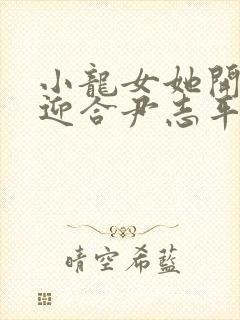 小龍女她開
迎合尹志平
晴空希藍